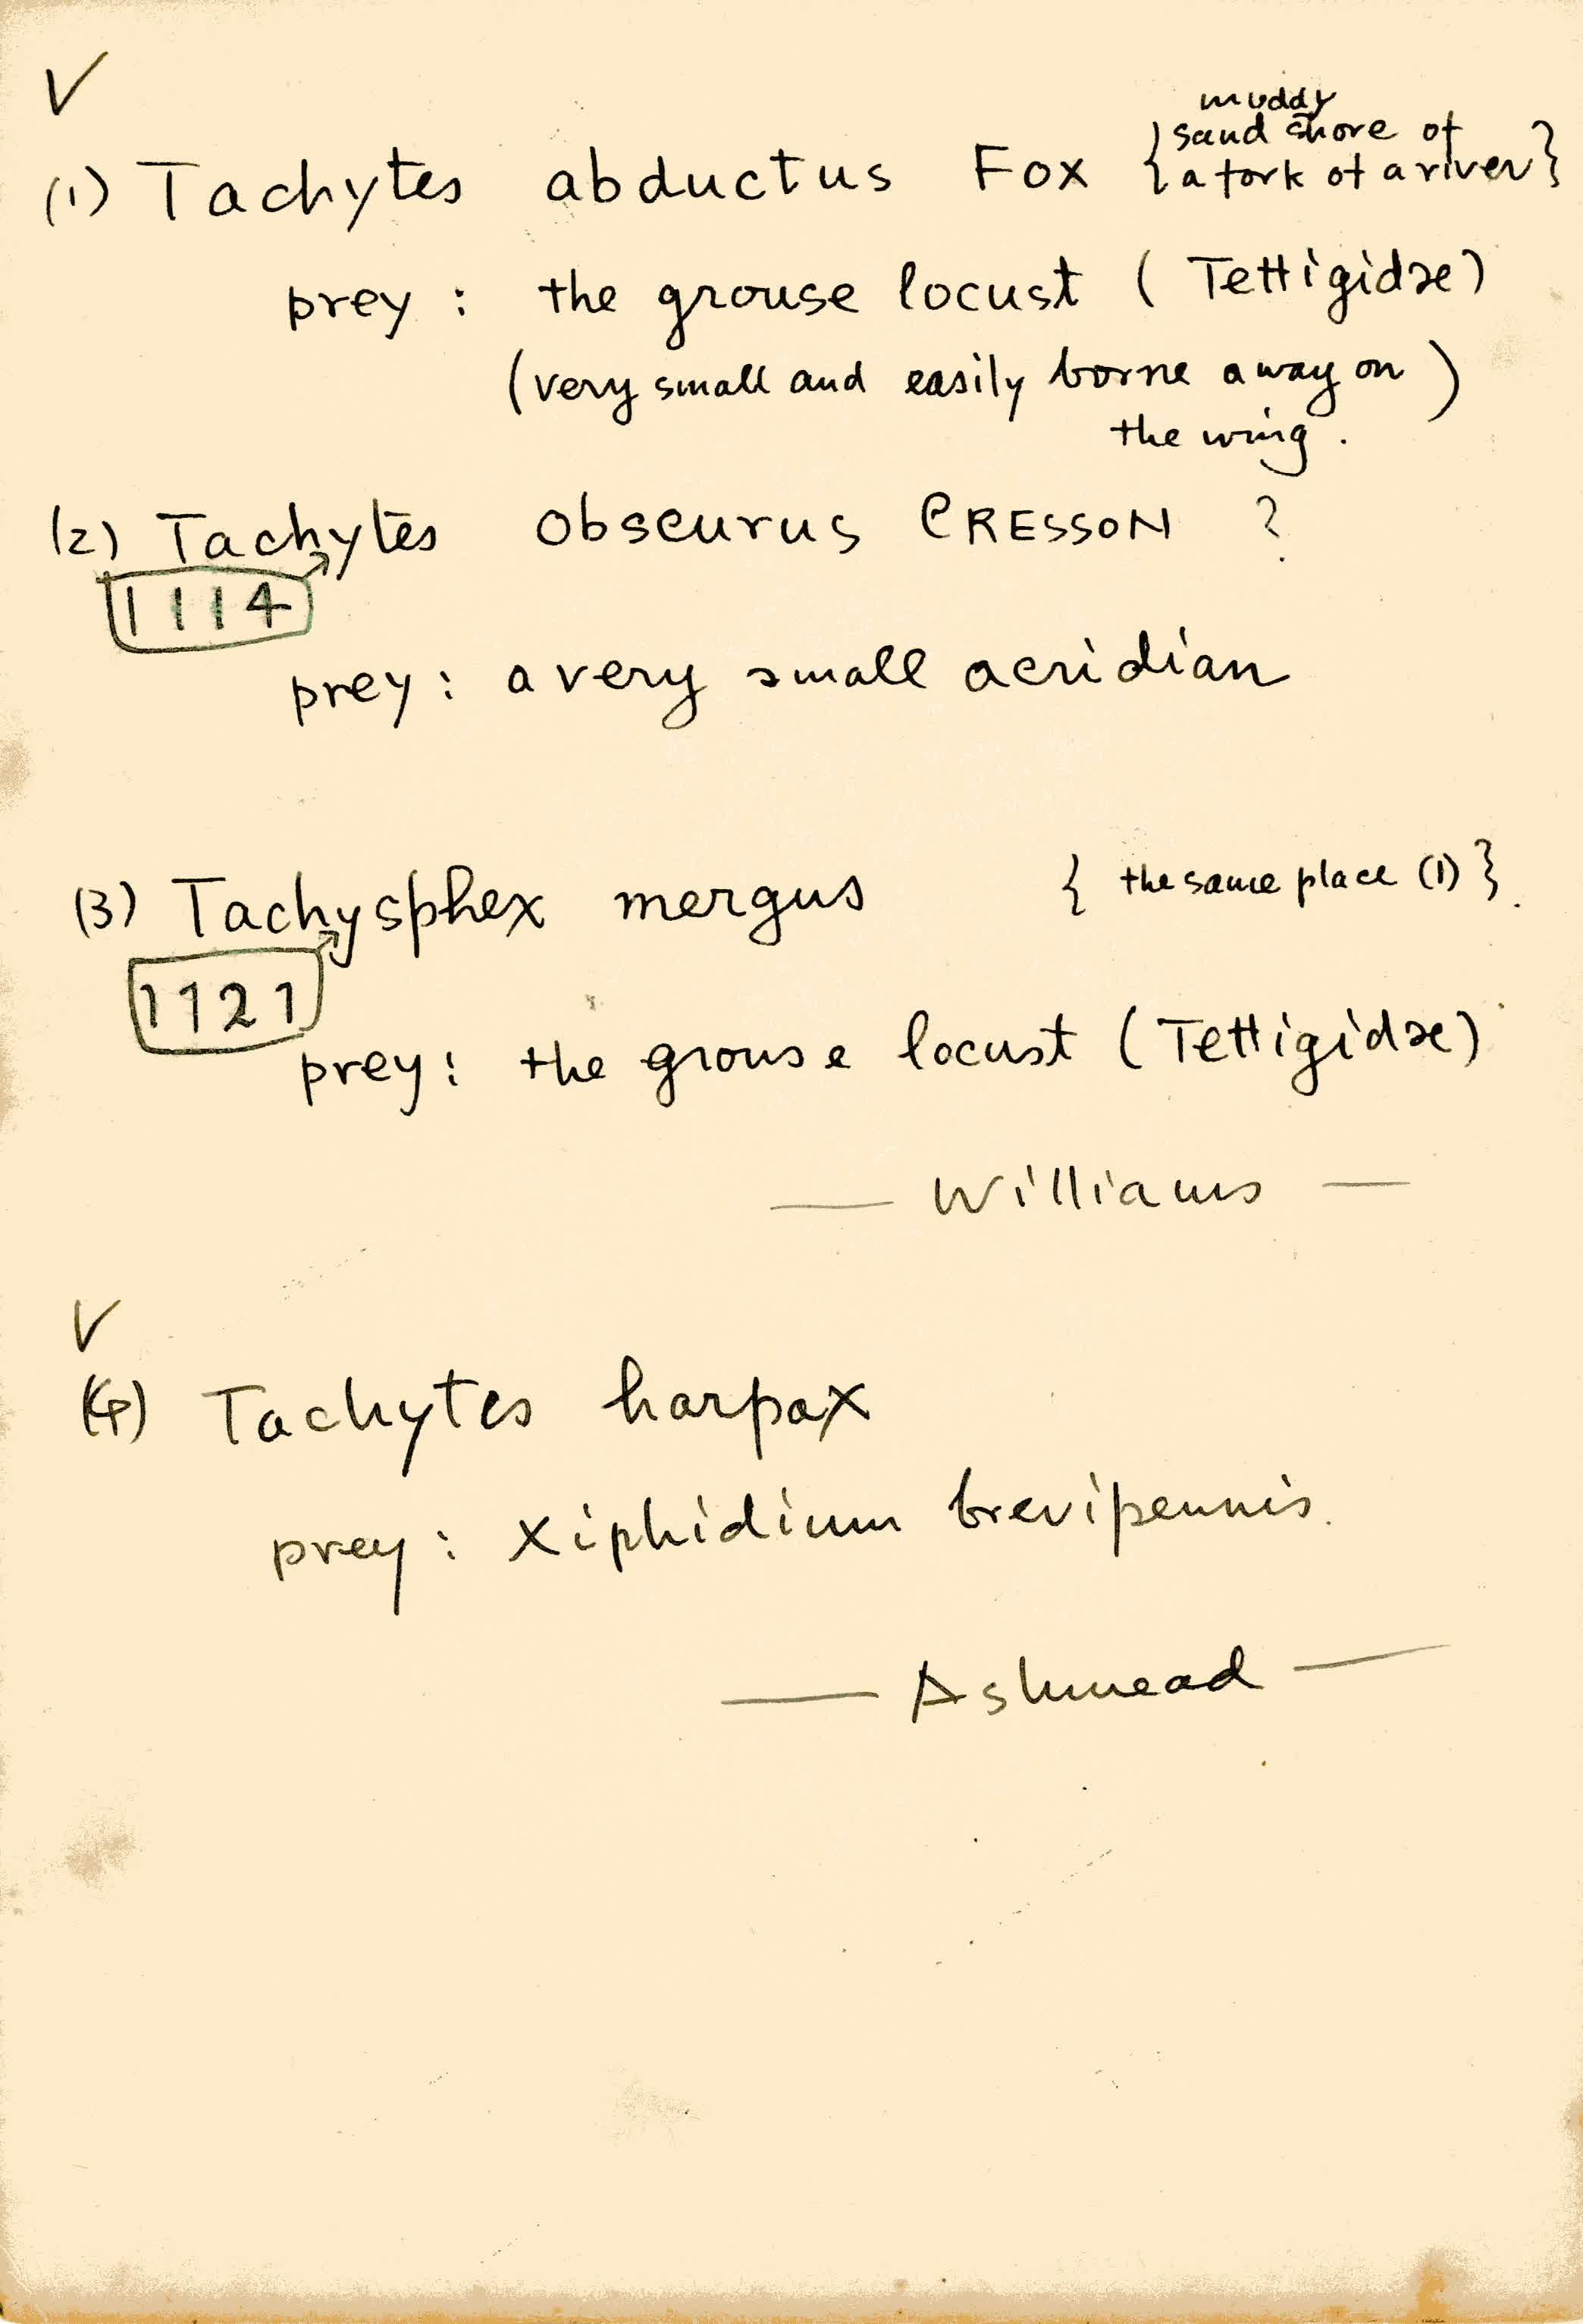 ✓
muddy
(1) Tachytes abductus Fox { sand shore of
a fork of a river }
prey : the grouse locust ( Tettigidae )
(very small and easily borne away on
the wing . )
(2) Tachytes obscurus CRESSON ?
1114
prey : a very small acridian
(3) Tachysphex mergus { the same place (1) } .
1121
prey : the grouse locust ( Tettigidae )
— Williams —
✓
(4) Tachytes harpax
prey : Xiphidium brevipennis.
— Ashmead —